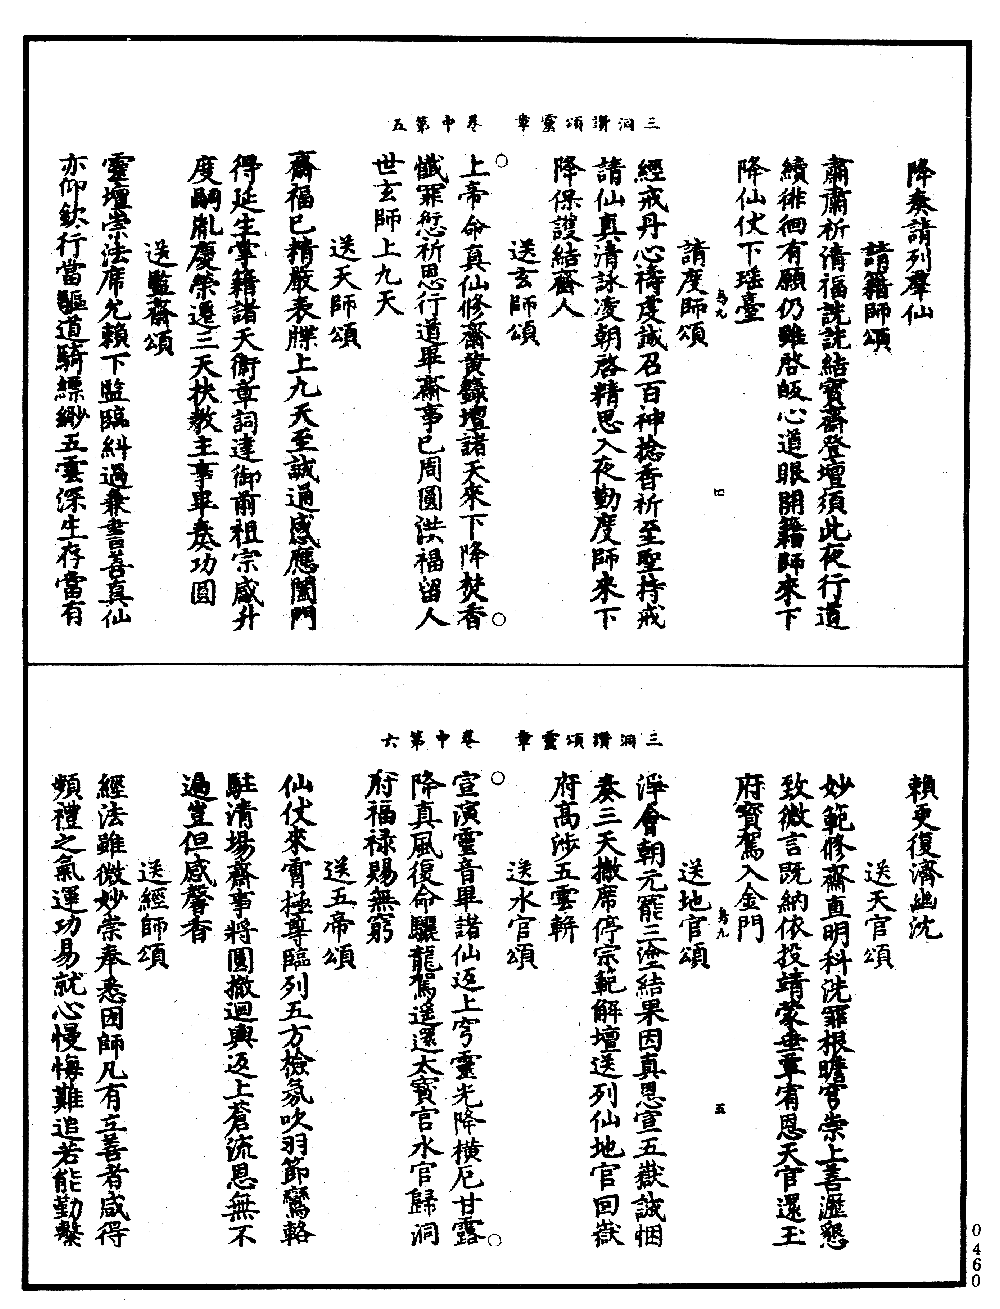 三洞讚頌靈章　卷中第五
降奏請列羣仙
請籍師頌
肅肅祈清福詵詵結寶齋登壇須此夜行道
續徘徊有願仍雖啓皈心道眼開籍師來下
降仙仗下瑶臺
請度師頌
鳥九
四
經戒丹心禱虔誠召百神捻香祈至聖持戒
請仙真清詠凌朝啓精思入夜勤度師來下
降保護結齋人
送玄師頌
上帝命真仙修齋黄籙壇諸天來下降焚香
懺罪愆祈恩行道畢齋事已周圓洪福留人
世玄師上九天
送天師頌
齋福已精嚴表牒上九天至誠通感應闔門
得延生掌籍諸天衛章詞達御前祖宗咸升
度嗣胤慶榮遷三天扶教主事畢奏功圓
送監齋頌
靈壇崇法席允賴下監臨糾過兼書善真仙
亦仰欽行當驅道騎縹緲五雲深生存當有
三洞讚頌靈章　卷中第六
賴更復濟幽沈
送天官頌
妙範修齋直明科洗罪根瞻穹崇上善瀝懇
致微言既納依投請蒙垂章宥恩天官還玉
府寶駕入金門
送地官頌
鳥九
五
淨會朝元罷三塗結果因真恩宣五嶽誠悃
奏三天撤席停宗範解壇送列仙地官回嶽
府高涉五雲軿
送水官頌
宣演靈音畢諸仙返上穹靈光降橫厄甘露
降真風復命驪龍駕遥還太寶宮水官歸洞
府福禄賜無窮
送五帝頌
仙仗來霄極尊臨列五方檢氛吹羽節鸞輅
駐清場齋事將圓撤迴輿返上蒼流恩無不
過豈但感馨香
送經師頌
經法雖微妙崇奉悉因師凡有立善者咸得
頻禮之氣運功易就心慢悔難追若能勤繫
0460